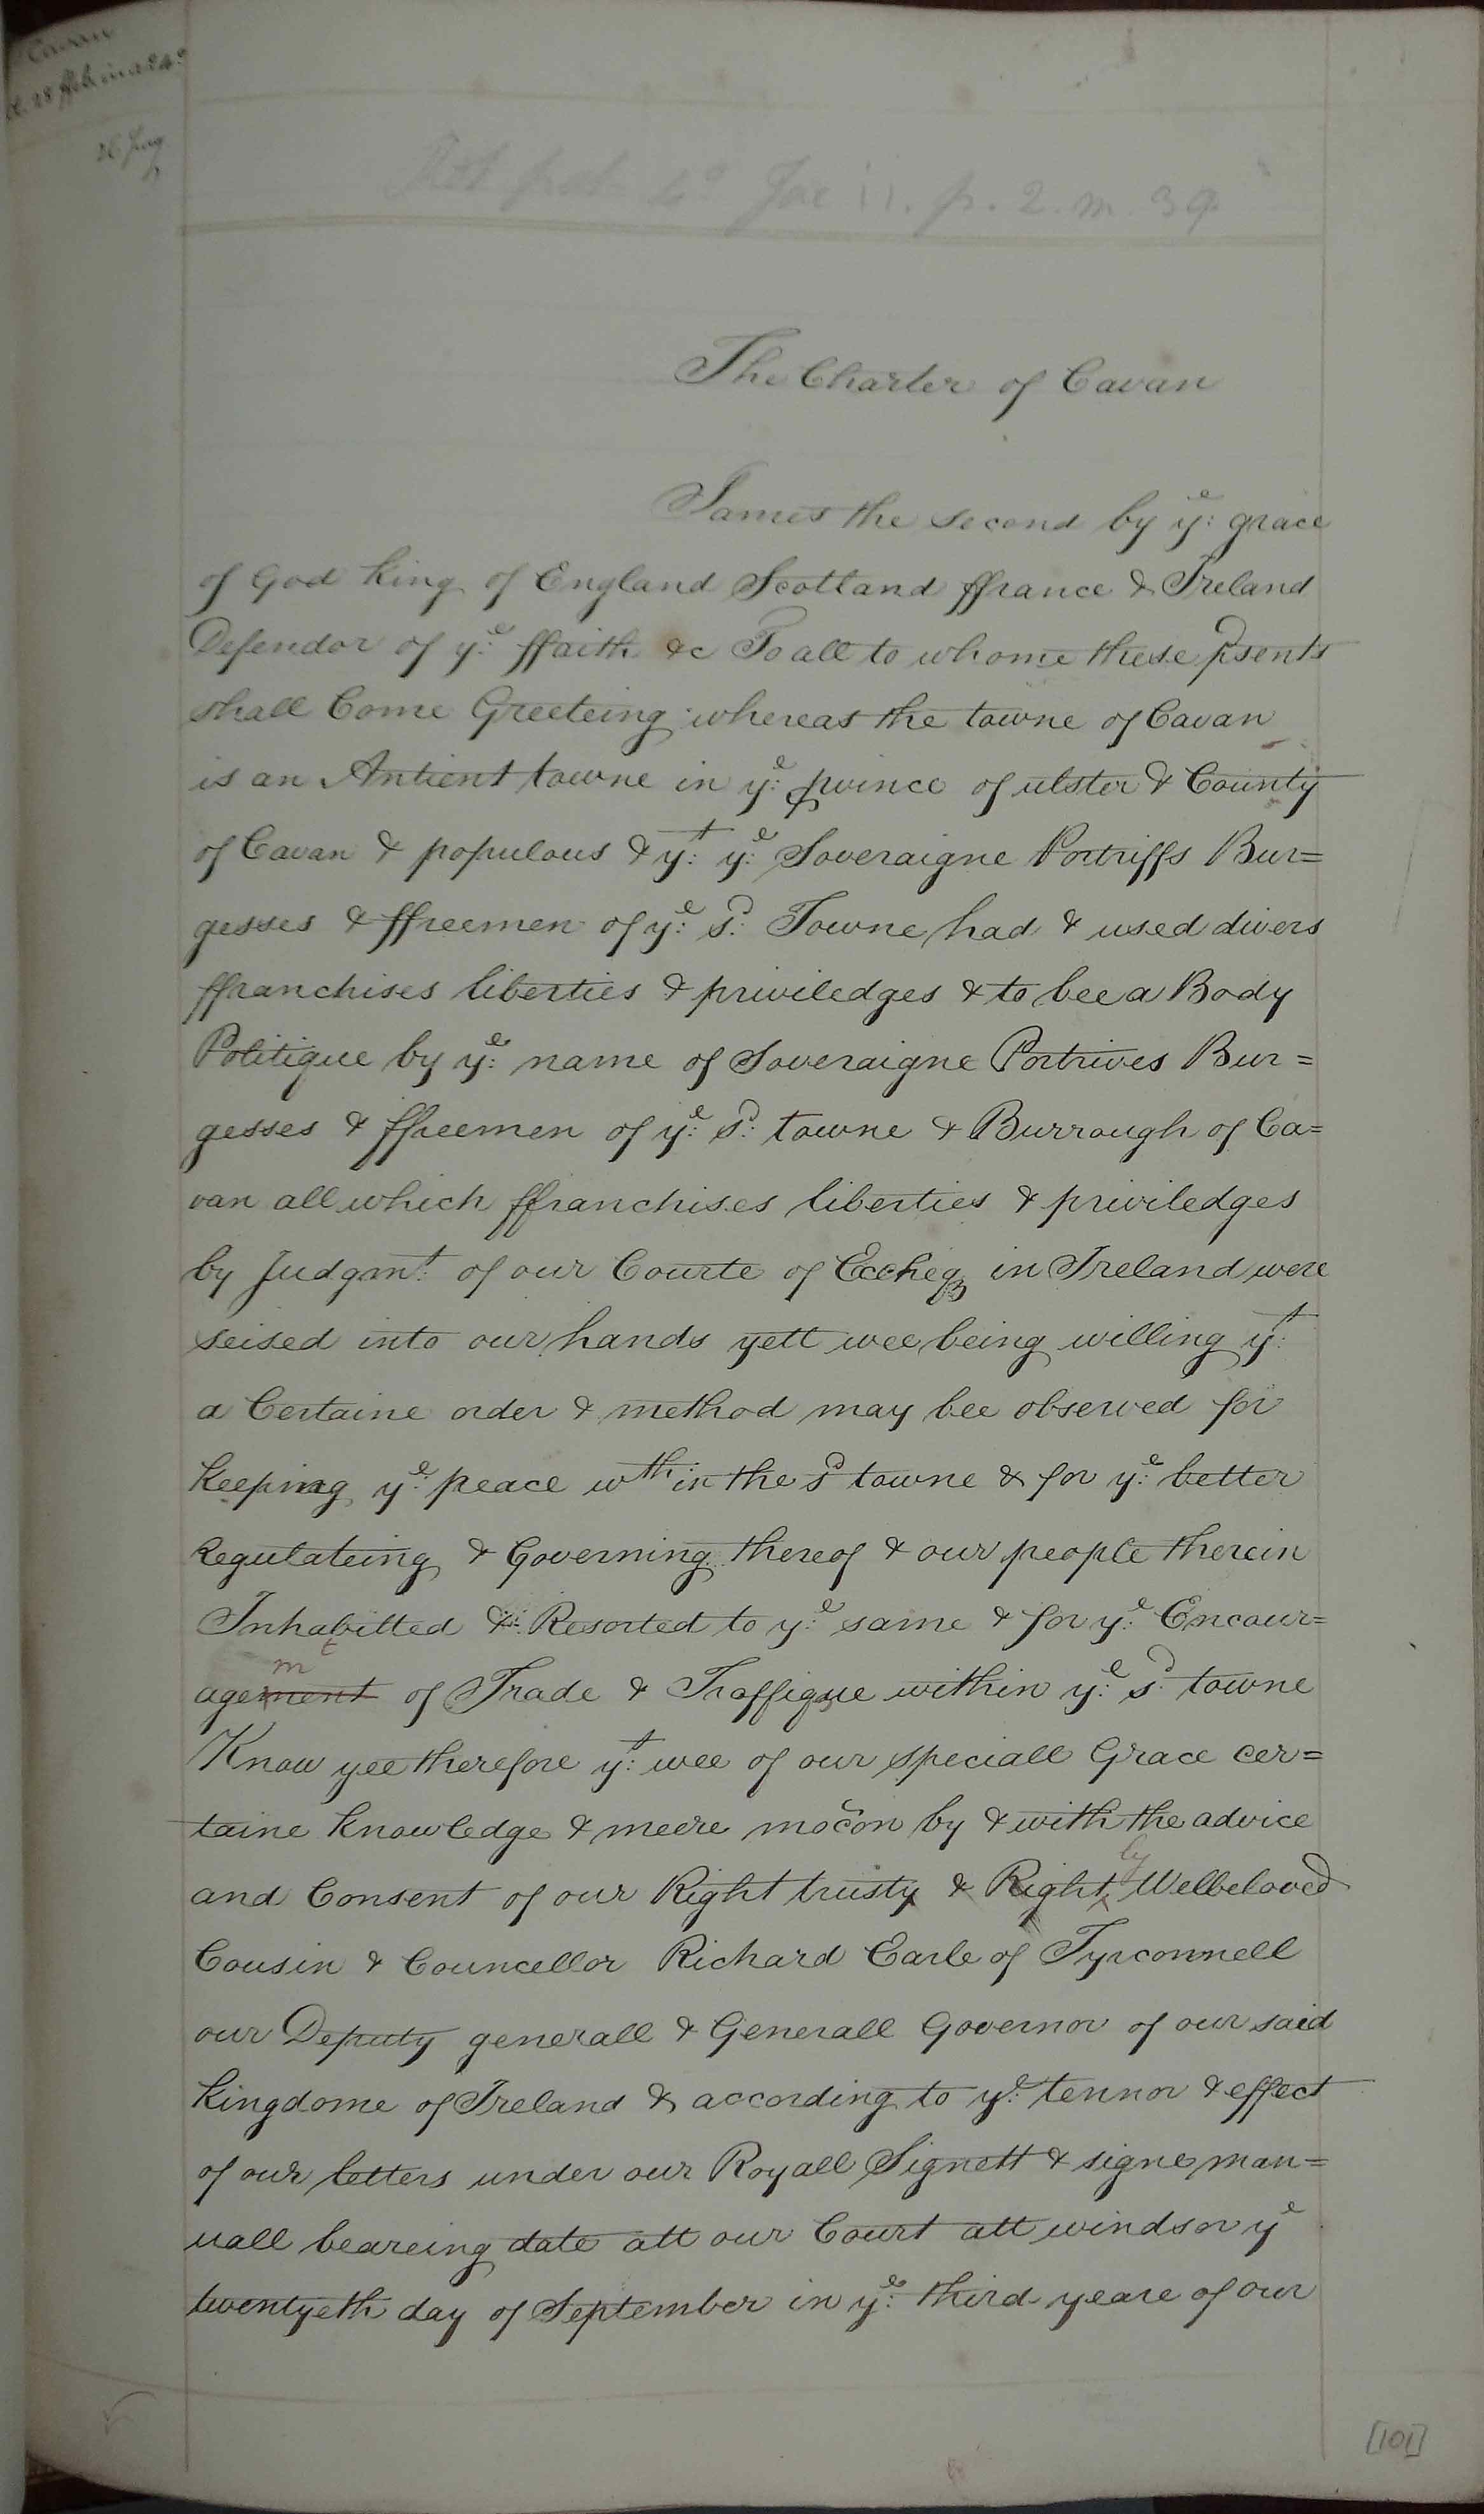 Cavan
26 Jany
Rot pat 4° Jac 11. p. 2. m. 39
The Charter of Cavan
James the second by yᵉ: grace
of God King of England Scotland ffrance & Ireland
Defendor of yᵉ: ffaith &c To all to whome these psents
shall Come Greeteing whereas the towne of Cavan
is an Antient towne in yᵉ: pvince of ulster & County
of Cavan & populous & yᵗ: yᵉ: Soveraigne Portriffs Bur=
gesses & ffreemen of yᵉ: sᵈ: Towne had & used divers
ffranchises liberties & priviledges & to bee a Body
Politique by yᵉ: name of Soveraigne Portrives Bur=
gesses & ffreemen of yᵉ: sᵈ: towne & Burrough of Ca=
van all which ffranchises liberties & priviledges
by Judgmᵗ: of our Courte of Eccheqꝫ in Ireland were
seised into our hands yett wee being willing yᵗ:
a Certaine order & method may bee observed for
keeping yᵉ: peace wᵗʰ:in the sᵈ towne & for yᵉ: better
Regulateing & Governing thereof & our people therein
Inhabitted & Resorted to yᵉ: same & for yᵉ: Encour=
agement mᵗ of Trade & Traffique within yᵉ: sᵈ: towne
Know yee therefore yᵗ: wee of our speciall Grace cer=
taine knowledge & meere moc̃on by & with the advice
and Consent of our Right trusty & Rightly Welbeloved
Cousin & Councellor Richard Earle of Tyrconnell
our Deputy generall & Generall Governor of our said
Kingdome of Ireland & according to yᵉ: tennor & effect
of our letters under our Royall Signett & signe man=
uall beareing date att our Court att windsor yᵉ
twentyeth day of September in yᵉ: third yeare of our
[101]